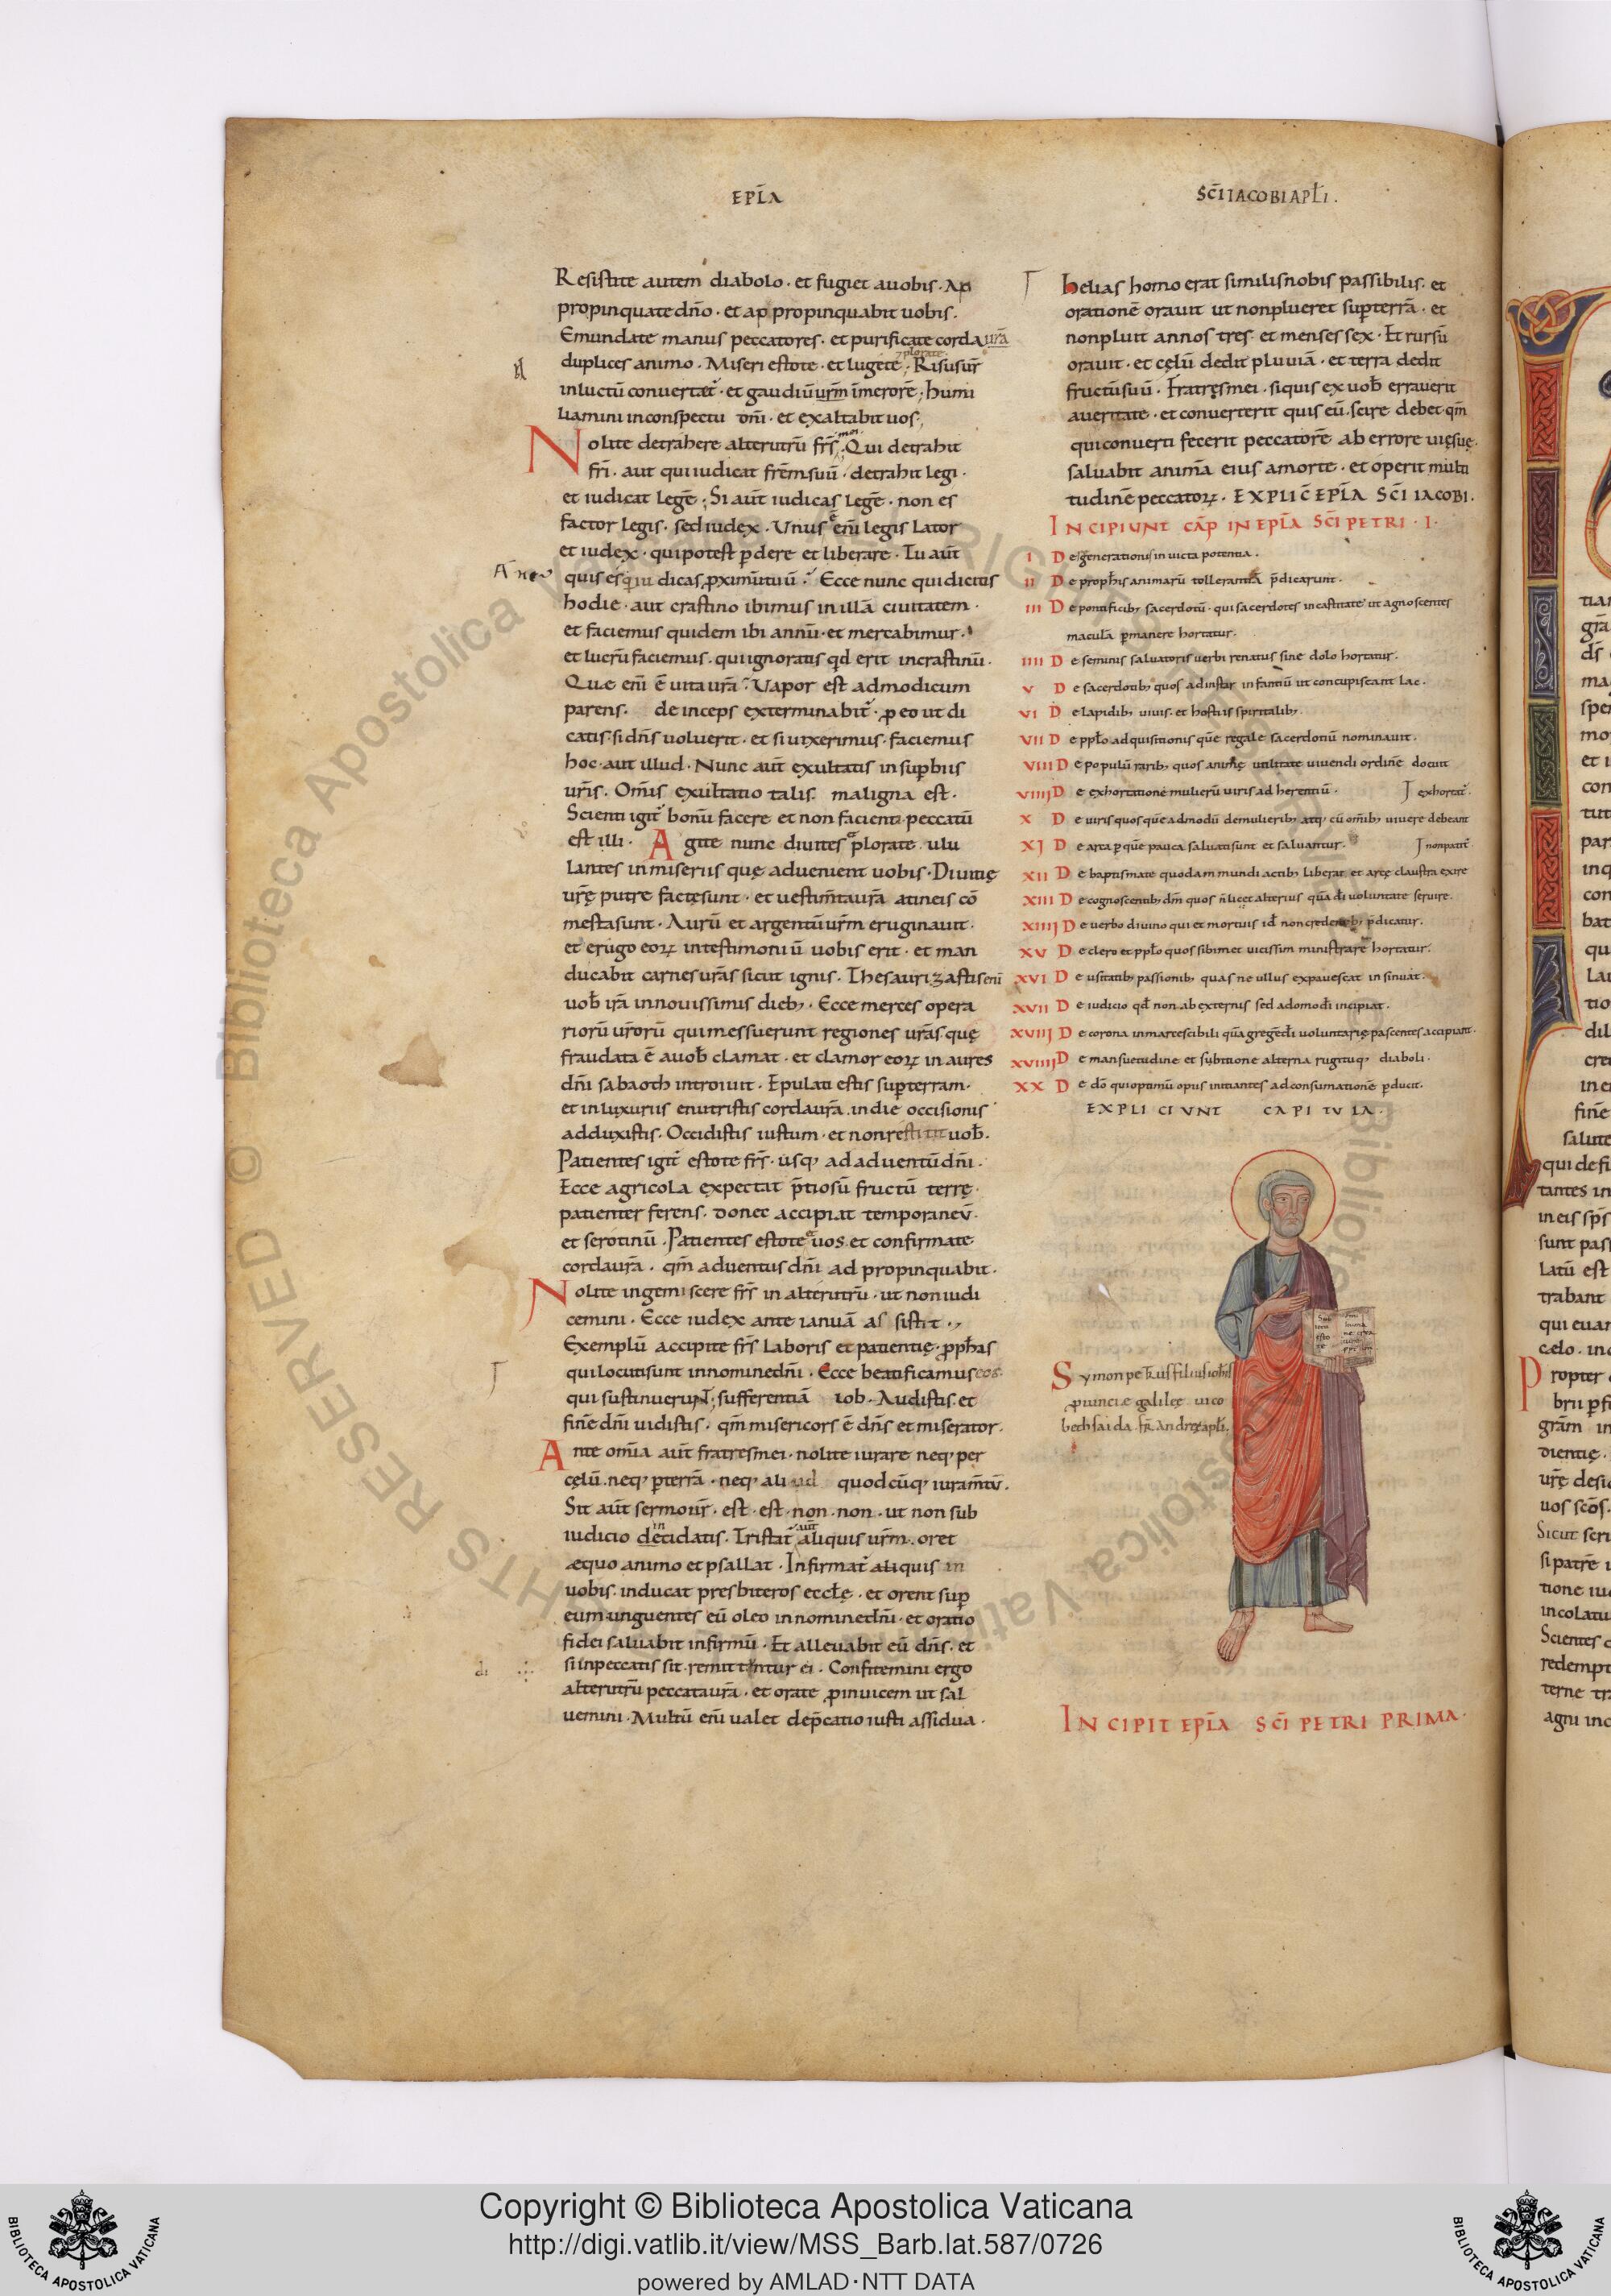 EPĪA
SC̄I IACOBI APL̄I.
Resistite autem diabolo · et fugiet auobis · Ap
propinquate dn̄o · et appropinquabit uobis ·
Emundate manus peccatores · et purificate corda ur̄a
duplices animo · Miseri estote · et lugete · Risus ur̄
plorate
in luctū conuertat̄ · et gaudiū ur̄m in merorē ; humi
liamini in conspectu dn̄i · et exaltabit uos ;
Nolite detrahere alterutrū fr̄s · Qui detrahit
mei
fr̄i · aut qui iudicat fr̄em suū · detrahit legi ·
et iudicat legē ; Si aut̄ iudicas legē · non es
factor legis · sed iudex · Unus ē eni legis Lator
et iudex · qui potest ꝑdere et liberare · Tu aut̄
quis es qui iudicas ꝓximū tuū · Ecce nunc qui dicitis
hodie · aut crastino ibimus in illā ciuitatem ·
et faciemus quidem ibi annū · et mercabimur ·
et lucrū faciemus · qui ignoratis qd erit in crastinū ·
Que eni ē uita ur̄a · Vapor est ad modicum
parens · deinceps exterminabit̄ · ꝓ eo ut di
catis · si dn̄s uoluerit · et si uixerimus · faciemus
hoc · aut illud · Nunc aut̄ exultatis in suꝑbiis
ur̄is · Om̄is exultatio talis maligna est ·
Scienti igit̄ bonū facere et non facienti · peccatū
est illi · Agite nunc diuites plorate ulu
lantes in miseriis quę aduenient uobis · Diuitię
ur̄ę putre factę sunt · et uestim̄ta ur̄a a tineis cō
mesta sunt · Aurū et argentū ur̄m eruginauit ·
et erugo eoꝝ in testimoniū uobis erit · et man
ducabit carnes ur̄as sicut ignis · Thesaurizastis eni
uob̄ irā in nouissimis dieb; · Ecce merces opera
riorū ur̄orū qui messuerunt regiones ur̄as · quę
fraudata ē a uob̄ clamat · et clamor eoꝝ in aures
dn̄i sabaoth introiuit · Epulati estis suꝑ terram ·
et in luxuriis enutristis corda ur̄a · in die occisionis
adduxistis · Occidistis iustum · et non restitit uob̄ ·
Patientes igit̄ estote fr̄s · usq; ad aduentū dn̄i ·
Ecce agricola expectat p̄tiosū fructū terrę ·
patienter ferens · donec accipiat temporaneū ·
et serotinū · Patientes estote uos et confirmate
corda ur̄a · qm̄ aduentus dn̄i adpropinquabit ·
Nolite ingemiscere fr̄s in alterutrū · ut non iudi
cemini · Ecce iudex ante ianuā assistit ·,
Exemplū accipite fr̄s Laboris et patientię · ꝓph̄as
qui locuti sunt in nomine dn̄i · Ecce beatificamus eos ·
qui sustinuerunt · sufferentiā iob · Audistis · et
finē dn̄i uidistis · qm̄ misericors ē dn̄s et miserator ·
Ante om̄ia aut̄ fratres mei · nolite iurare neq; per
cęlū · neq; ꝑ terrā · neq; aliud quodcūq; iuram̄tū ·
Sit aut̄ sermo ur̄ · est · est · non · non · ut non sub
iudicio decidatis · Tristat̄ aliquis ur̄m · oret
in aut̄
æquo animo et psallat · Infirmat̄ aliquis in
uobis · inducat presbiteros eccłę · et orent suꝑ
eum · unguentes eū oleo in nomine dn̄i · et oratio
fidei saluabit infirmū · Et alleuabit eū dn̄s · et
si in peccatis sit · remittuntur ei · Confitemini ergo
alterutrū peccata ur̄a · et orate ꝓ inuicem ut sal
uemini · Multū eni ualet dep̄catio iusti assidua ·
helias homo erat similis nobis passibilis · et
orationē orauit ut non plueret suꝑ terrā · et
non pluit annos tres · et menses sex · Et rursū
orauit · et cęlū dedit pluuiā · et terra dedit
fructū suū · Fratres mei · si quis ex uob̄ errauerit
a ueritate · et conuerterit quis eū · scire debet · qm̄
qui conuerti fecerit peccatorē ab errore uię suę ·
saluabit animā eius a morte · et operit multi
tudinē peccatoꝝ · EXPLIC̄ EPĪA SC̄I IACOBI ·
INCIPIUNT CAP̄ IN EPĪA SC̄I PETRI · I ·
I De generationis inuicta potentia ·
II De proph̄is animarū tollerantiā p̄dicarunt ·
III De pontificib; sacerdotū · qui sacerdotes in castitate ut agnoscentes
maculā ꝑmanere hortatur ·
IIII De seminis saluatoris uerbi renatus sine dolo hortatur ·
V De sacerdotib; quos ad instar infantiū ut concupiscant lac ·
VI De lapidib; uiuis · et hostiis spiritalib; ·
VII De pplo adquisitionis quē regale sacerdotiū nominauit ·
VIII De populū rarib; quos animę utilitate uiuendi ordinē docuit
VIIII De exhortatione mulierū uiris adherentiū · exhortat̄ ·
X De uiris quos quē admodū de mulierib; atq; cū om̄ib; uiuere debeant
XI De arca ꝑ quē pauca saluati sunt et saluantur · non patit̄
XII De baptismate quodam mundi actib; liberat et arcę claustra exire
XIII De cognoscentib; dm̄ quos n̄ licet alterius quā di uoluntate seruire ·
XIIII De uerbo diuino qui et mortuis id non credentib; p̄dicatur ·
XV De clero et pplo quos sibimet uicissim ministrare hortatur ·
XVI De usitatib; passionib; quas ne ullus expauescat insinuat ·
XVII De iudicio qd non ab externis sed a domo di incipiat ·
XVIII De corona inmarcescibili quā gregē di uoluntarię pascentes accipiant ·
XVIIII De mansuetudine et subitione alterna rugituq; diaboli ·
XX De dō qui optimū opus initiantes ad consumationē ꝑducit ·
EXPLICIUNT CAPITULA ·
Symon petrus filius ioh̄is
ꝓuincie galileę uico
bethsaida · fr̄ andreę apl̄i ·
INCIPIT EPĪA SC̄I PETRI PRIMA ·
Copyright © Biblioteca Apostolica Vaticana
http://digi.vatlib.it/view/MSS_Barb.lat.587/0726
powered by AMLAD·NTT DATA
BIBLIOTECA APOSTOLICA VATICANA
BIBLIOTECA APOSTOLICA VATICANA